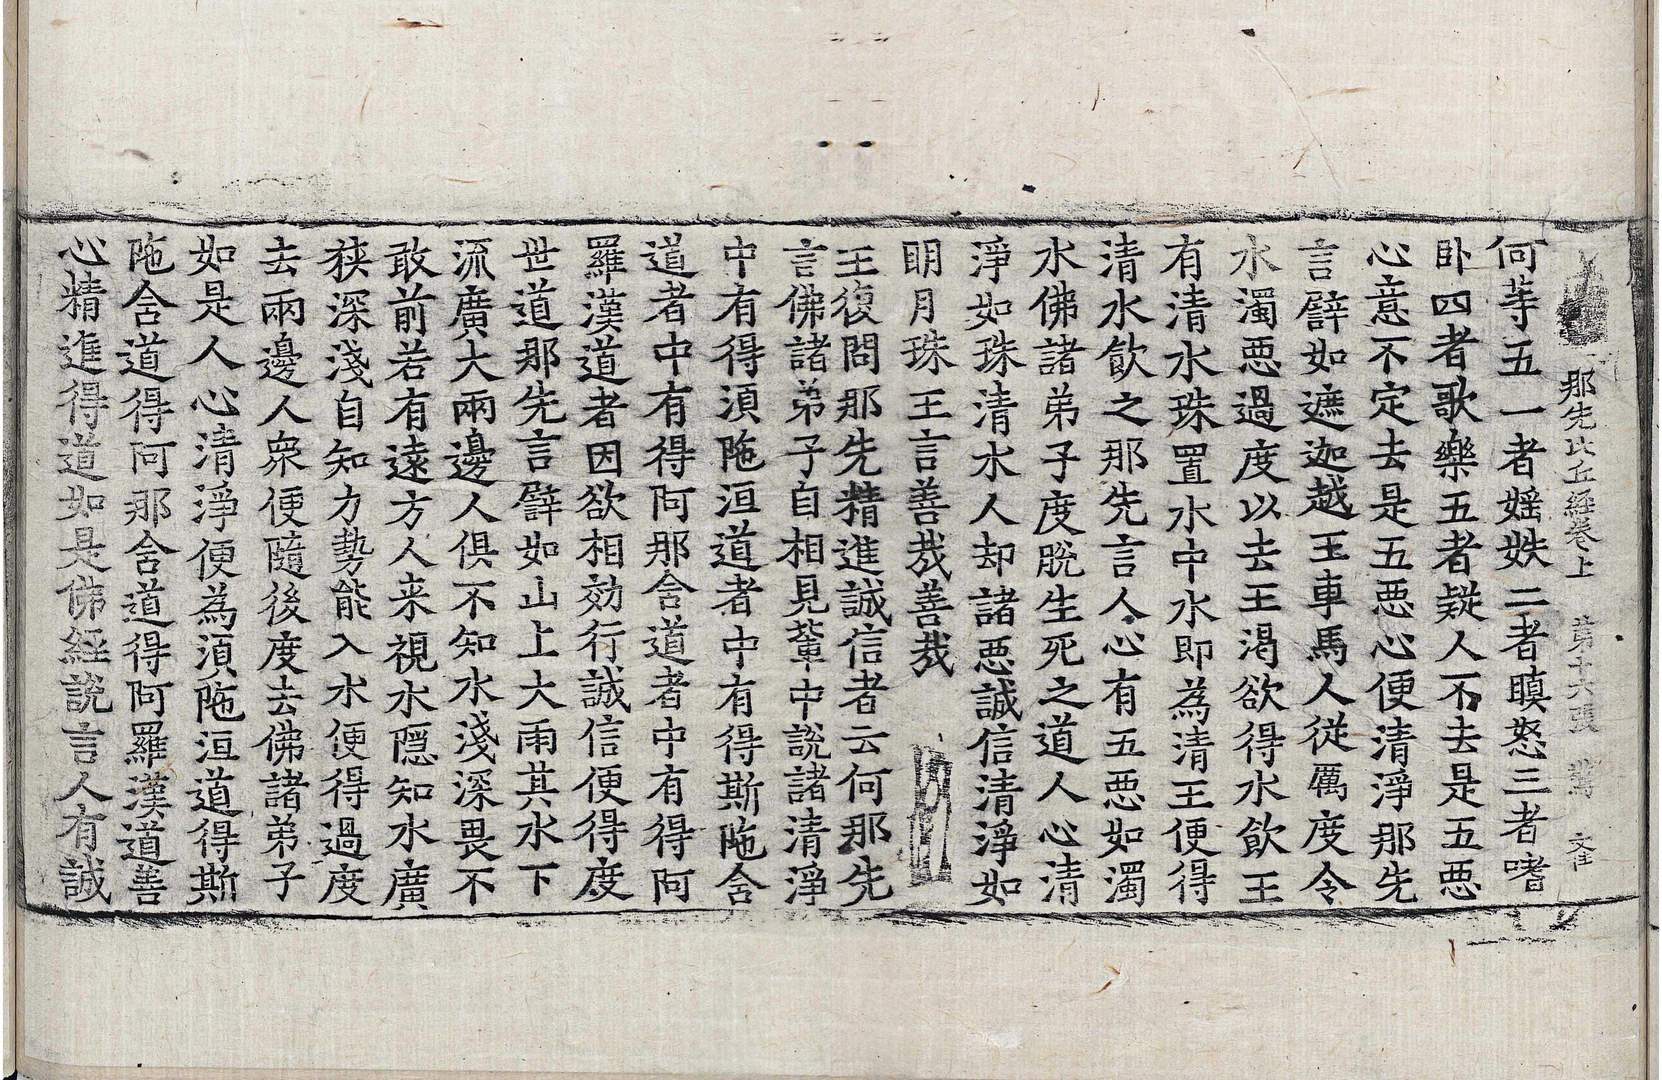 那先比丘經卷上 第十六張 文王
何等五一者婬妷二者瞋怒三者嗜
卧四者歌樂五者疑人不去是五惡
心意不定去是五惡心便清淨那先
言譬如遮迦越王車馬人從厲度令
水濁惡過度以去王渴欲得水飮王
有清水珠置水中水即為清王便得
清水飮之那先言人心有五惡如濁
水佛諸弟子度脫生死之道人心清
淨如珠清水人却諸惡誠信清淨如
明月珠王言善㢤善㢤
王復問那先精進誠信者云何那先
言佛諸弟子自相見輩中說諸清淨
中有得湏陁洹道者中有得斯陁含
道者中有得阿那含道者中有得阿
羅漢道者因欲相効行誠信便得度
世道那先言譬如山上大雨其水下
流廣大兩邊人俱不知水淺深畏不
敢前若有遠方人来視水隱知水廣
狹深淺自知力勢能入水便得過度
去兩邊人衆便隨後度去佛諸弟子
如是人心清淨便為湏陁洹道得斯
陁含道得阿那含道得阿羅漢道善
心精進得道如是佛經說言人有誠